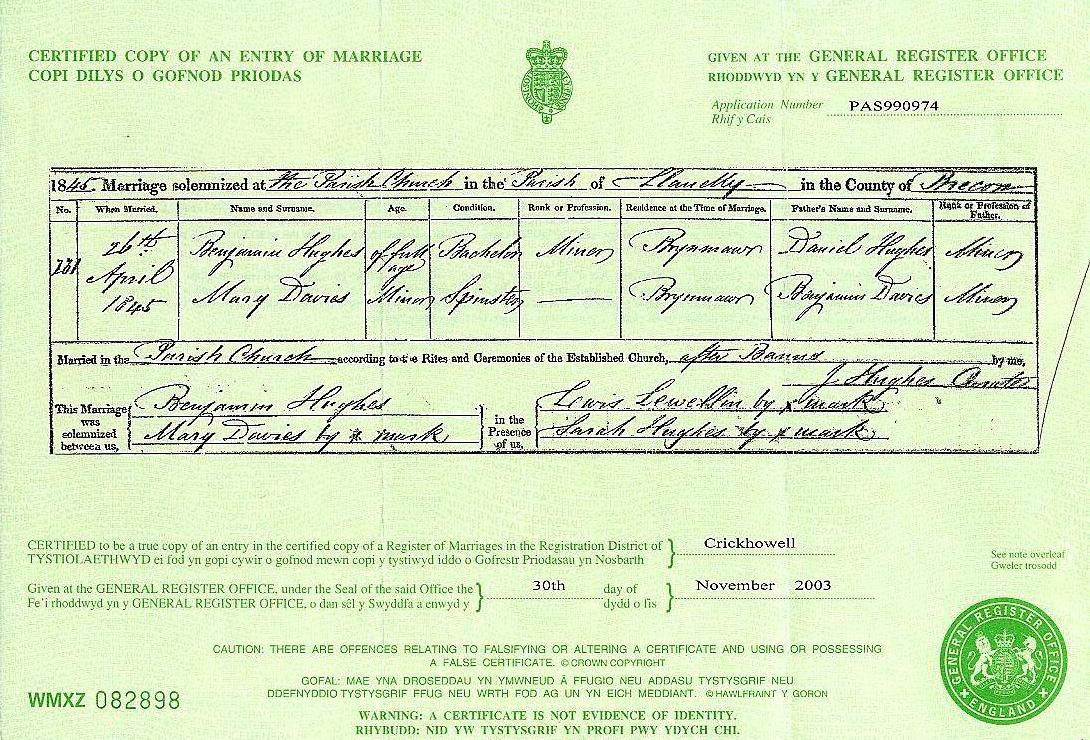 CERTIFIED COPY OF AN ENTRY OF MARRIAGE
COPI DILYS O GOFNOD PRIODAS
GIVEN AT THE GENERAL REGISTER OFFICE
RHODDWYD YN Y GENERAL REGISTER OFFICE
Application Number PAS990974
Rhif y Cais
1845. Marriage solemnized at the Parish Church in the Parish of Llanelly in the County of Brecon
No. When Married. Name and Surname. Age. Condition. Rank or Profession. Residence at the Time of Marriage. Father's Name and Surname. Rank or Profession of Father.
26th April 1845
Benjamin Hughes of full age Bachelor Miner Brynmawr Daniel Hughes Miner
Mary Davies Minor Spinster Brynmawr Benjamin Davies Miner
Married in the Parish Church according to the Rites and Ceremonies of the Established Church, after Banns by me,
J Hughes
This Marriage was solemnized between us,
Benjamin Hughes
Mary Davies by x mark
in the Presence of us,
Lewis Lewellin by x mark
Sarah Hughes by x mark
CERTIFIED to be a true copy of an entry in the certified copy of a Register of Marriages in the Registration District of Crickhowell
TYSTIOLAETHWYD ei fod yn gopi cywir o gofnod mewn copi y tystiwyd iddo o Gofrestr Priodasau yn Nosbarth
See note overleaf
Gweler trosodd
Given at the GENERAL REGISTER OFFICE, under the Seal of the said Office the 30th day of November 2003
Fe'i rhoddwyd yn y GENERAL REGISTER OFFICE, o dan sêl y Swyddfa a enwyd y dydd o fis
CAUTION: THERE ARE OFFENCES RELATING TO FALSIFYING OR ALTERING A CERTIFICATE AND USING OR POSSESSING
A FALSE CERTIFICATE. © CROWN COPYRIGHT
GOFAL: MAE YNA DROSEDDAU YN YMWNEUD Â FFUGIO NEU ADDASU TYSTYSGRIF NEU
DDEFNYDDIO TYSTYSGRIF FFUG NEU WRTH FOD AG UN YN EICH MEDDIANT. © HAWLFRAINT Y GORON
WARNING: A CERTIFICATE IS NOT EVIDENCE OF IDENTITY.
RHYBUDD: NID YW TYSTYSGRIF YN PROFI PWY YDYCH CHI.
WMXZ 082898
GENERAL REGISTER OFFICE
ENGLAND